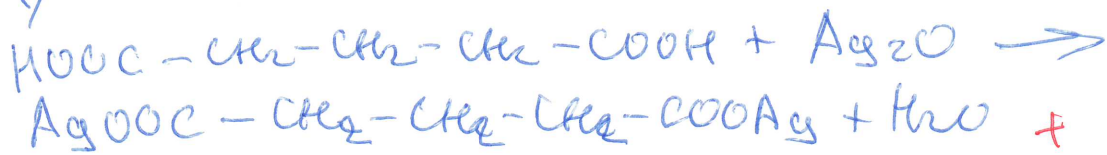 HOOC – CH2 – CH2 – CH2 – COOH + Ag2O ⟶
AgOOC – CH2 – CH2 – CH2 – COOAg + H2O +